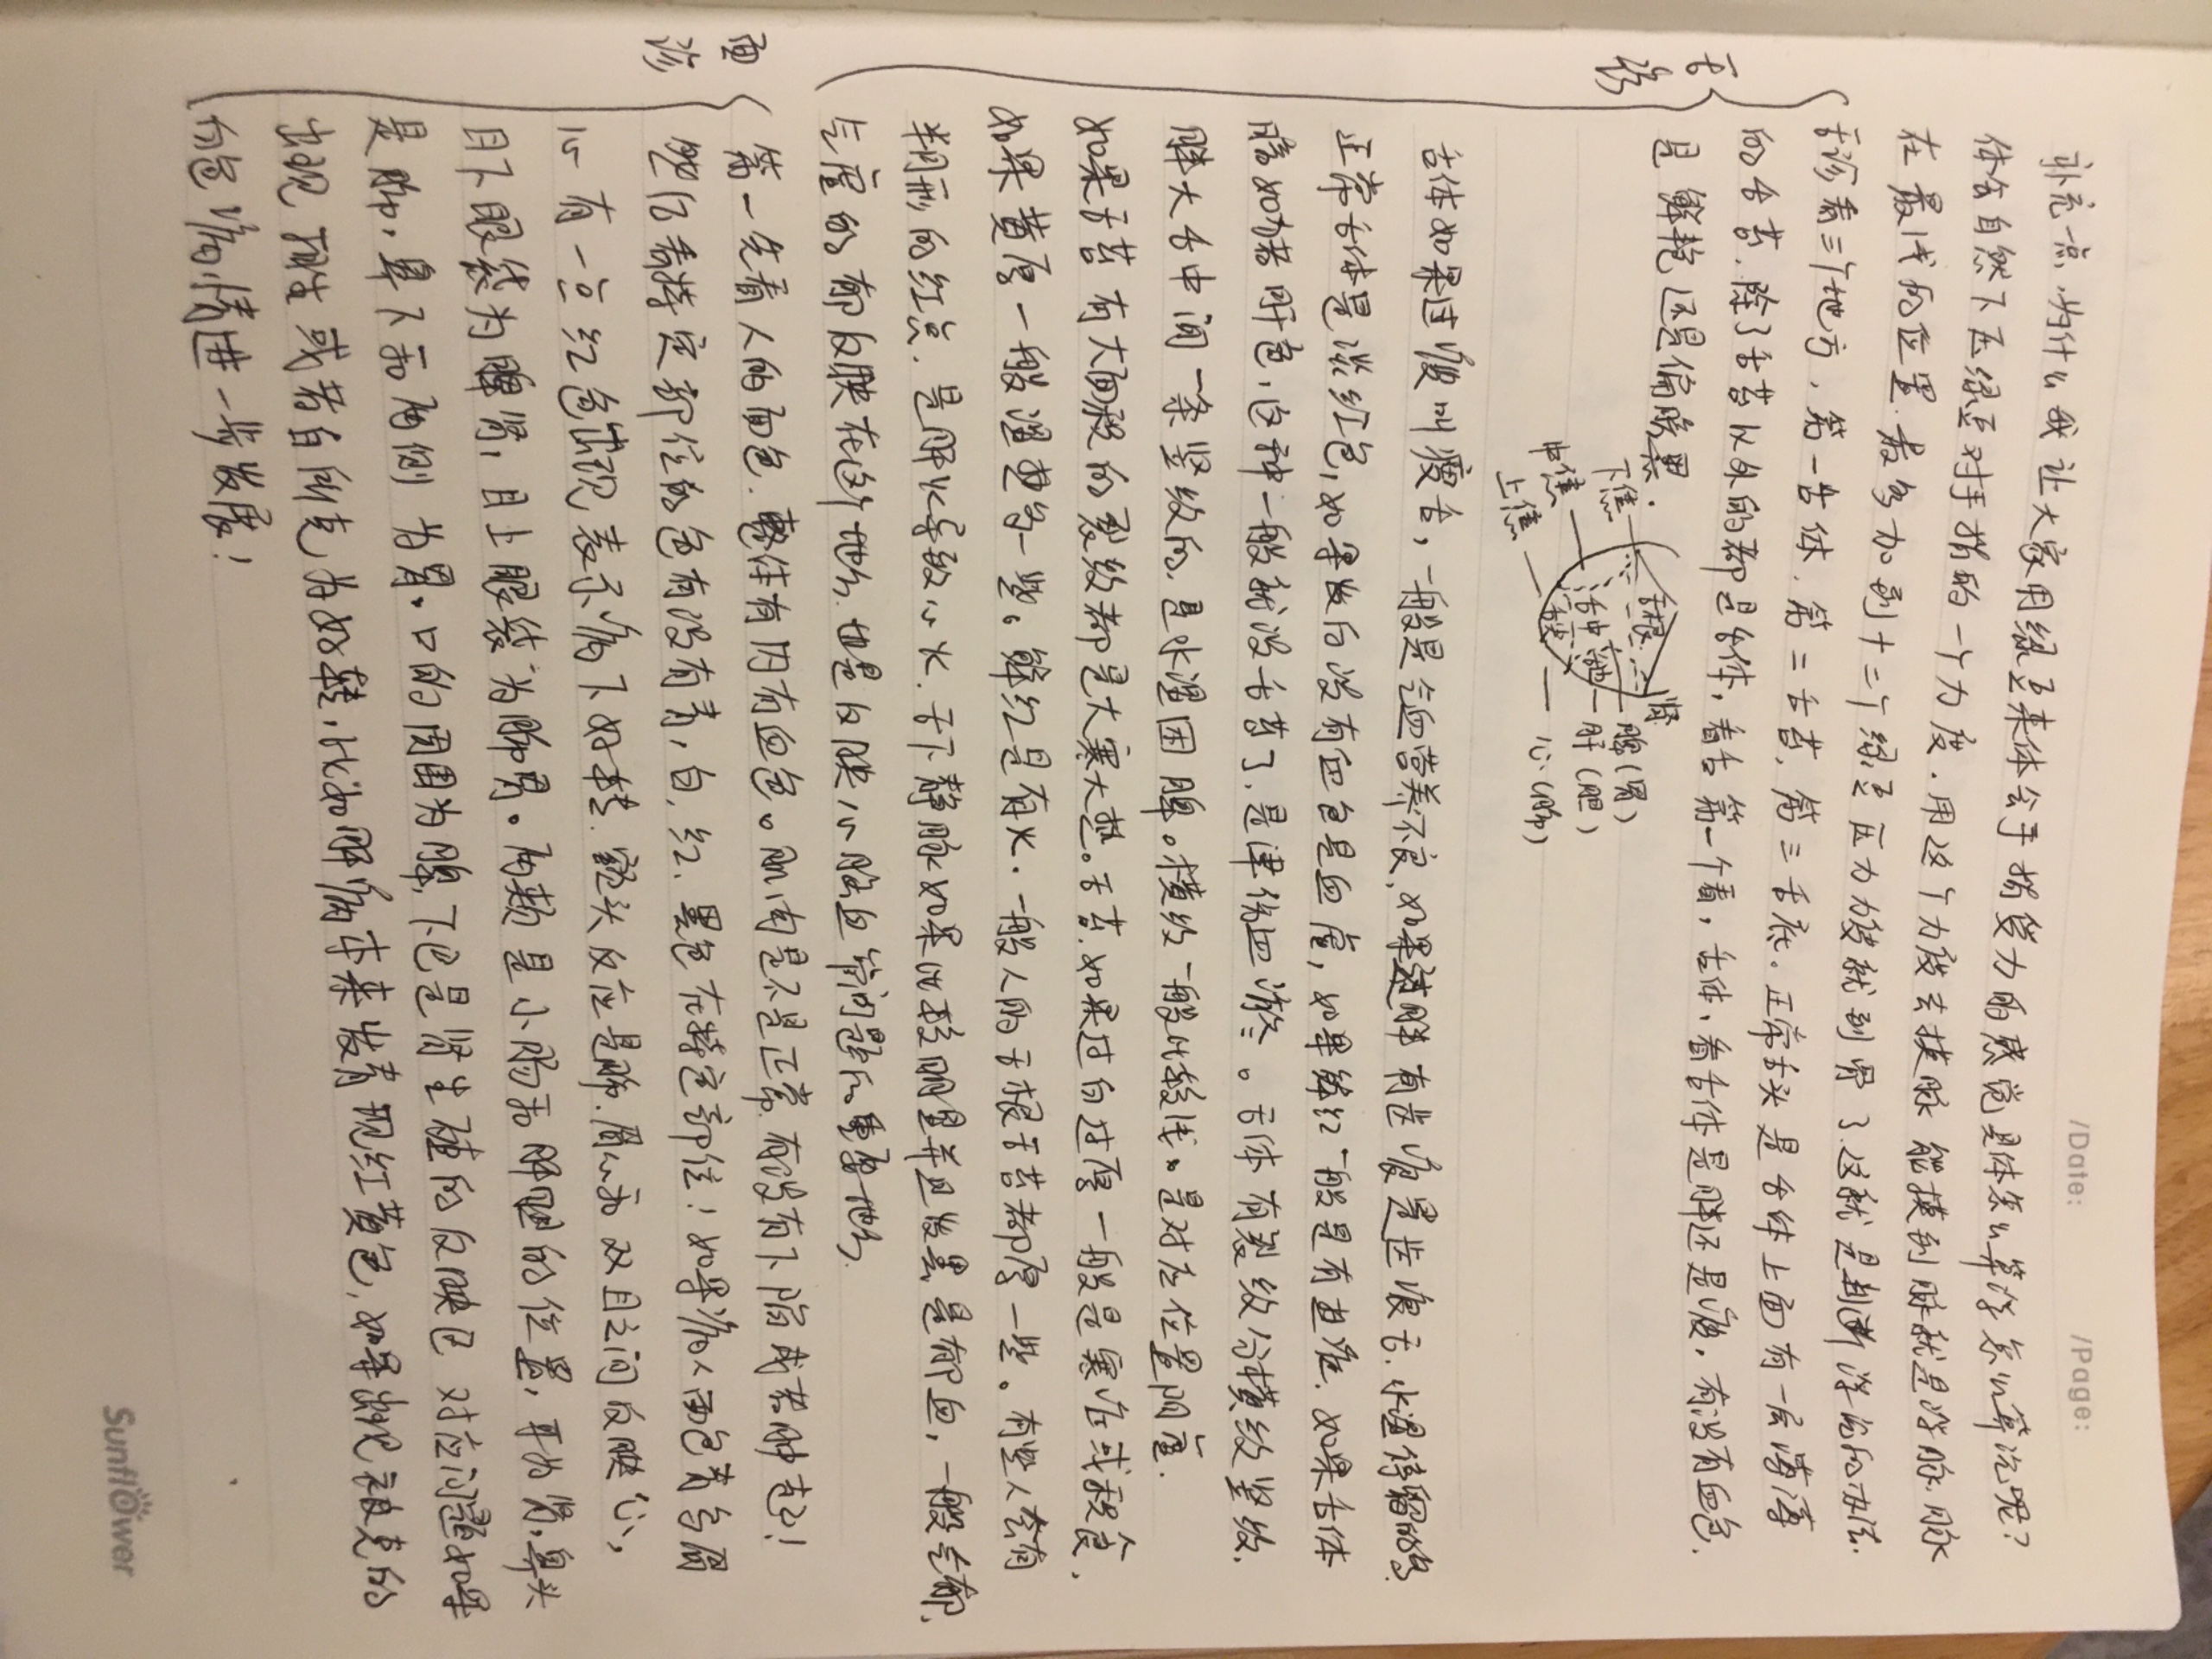 /Date: /Page:
补充一点，为什么我让大家用绿豆来体会手指受力的感觉具体怎么算浮怎么算沉呢？
体会自然下压绿豆对手指的一个力度．用这个力度去摸脉 能摸到脉就是浮脉．脉
在最浅的位置．最多加到十二个绿豆压力力度就到骨了．这就是判断浮沉的办法．
舌诊看三个地方，第一舌体．第二舌苔，第三舌底．正常舌头是舌体上面有一层薄薄
的舌苔．除了舌苔以外的都是舌体，看舌第一个看，舌体，看舌体是胖还是瘦．有没有血色．
是鲜艳还是偏暗黑．
舌诊
下焦
中焦
上焦
舌根
舌中
舌边
舌尖
肾
脾(胃)
肝(胆)
心(肺)
舌体如果过瘦叫瘦舌，一般是气血营养不良．如果过胖 有齿痕是齿痕舌．水湿停留的多．
正常舌体是淡红色，如果发白没有血色是血虚，如果鲜红一般是有热症．如果舌体
暗如猪肝色，这种一般就没舌苔了，是津伤血瘀．舌体有裂纹分横纹竖纹．
胖大舌中间一条竖纹的．是水湿困脾。横纹一般比较浅。是对应位置阴虚．
如果舌苔有大面积的裂纹都是大寒大热。舌苔．如果过白过厚一般是寒症或积食．
如果黄厚一般湿热多一些。鲜红是有火．一般人的舌根舌苔都厚一些。有些人会有
半圆形的红点．是肝火导致心火．舌下静脉如果比较明显并且发黑是有郁血，一般气郁，
气虚的都反映在这个地方．也是反映心脑血管问题的重要地方．
面诊
第一先看人的面色．最佳有肉有血色。肌肉是不是正常．有没有下陷或者肿起！
然后看特定部位的色有没有青，白，红．黑色在特定部位！如果病人面色黄与眉
心有一点红色出现表示病下好转．额头反应是肺．眉心和双目之间反映心，
目下眼袋为脾肾，目上眼袋为肺胃。两颧是小肠和肝胆的位置，耳为肾．鼻头
是脾．鼻下和两侧为胃．口的周围为脾．下巴是肾生殖的反映区 对应问题如果
出现 相生或者自所克为好转，比如脾病本来发青现红黄色，如果出现被克的
颜色病情进一步发展！
Sunflower